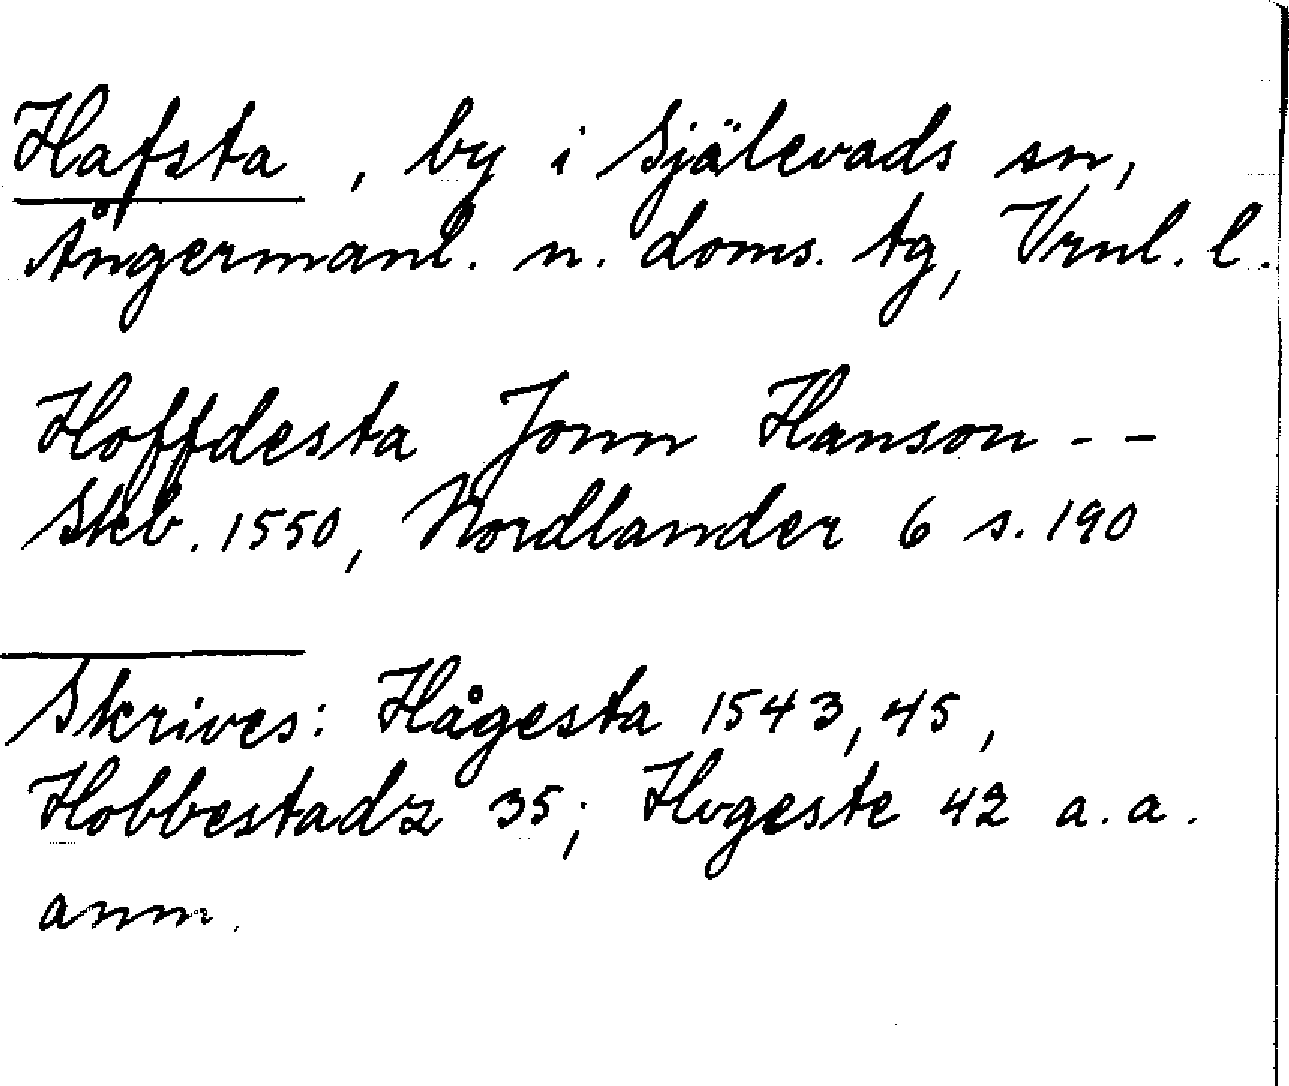 Hafsta, by i Själevads sn,
Ångermanl. n. doms. tg, Vrnl. l.
Hoffdesta Jonn Hanson - -
Skb. 1550, Nordlander 6 s. 190
Skrives: Hågesta 1543, 45,
Hobbestadz 35; Hogeste 42 a. a.
anm.